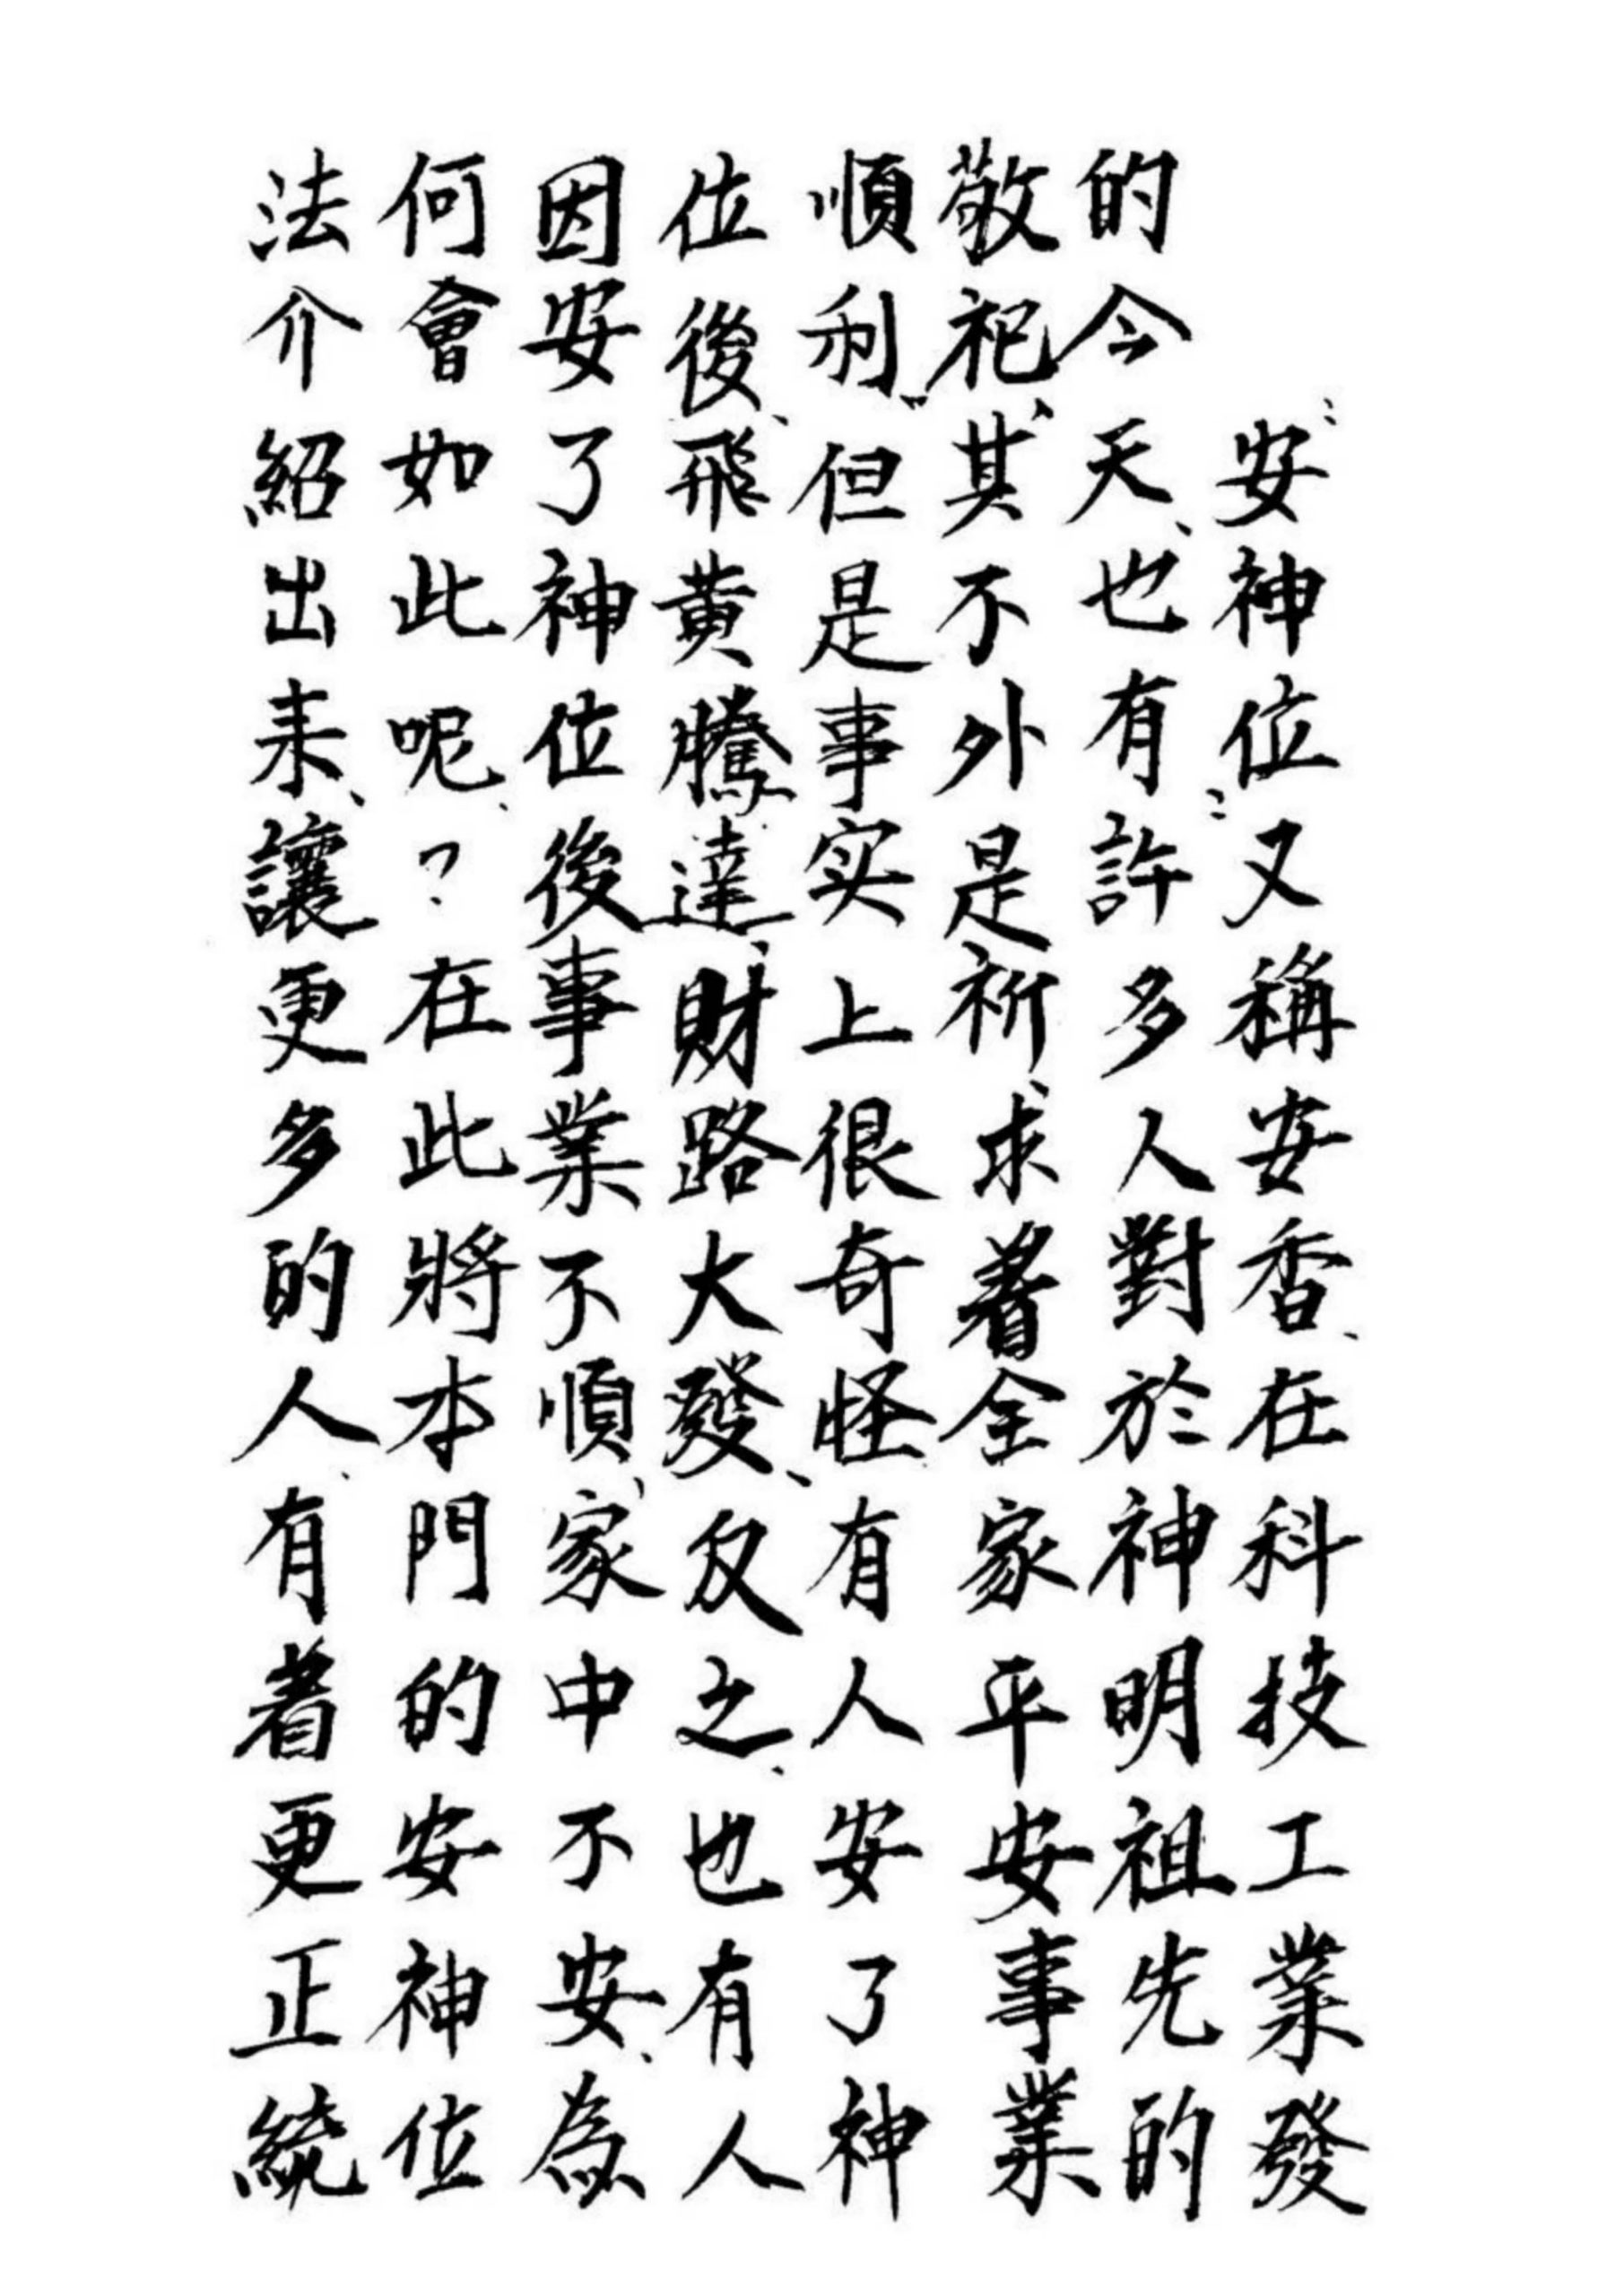 「安神位」又稱安香、在科技工業發
的今天、也有許多人對於神明祖先的
敬祀、其不外是祈求著全家平安事業
順利、但是事实上很奇怪有人安了神
位後、飛黃騰達、財路大發、反之、也有人
因安了神位後事業不順、家中不安、為
何會如此呢、?在此將本門的安神位
法介紹出来、讓更多的人、有着更正統